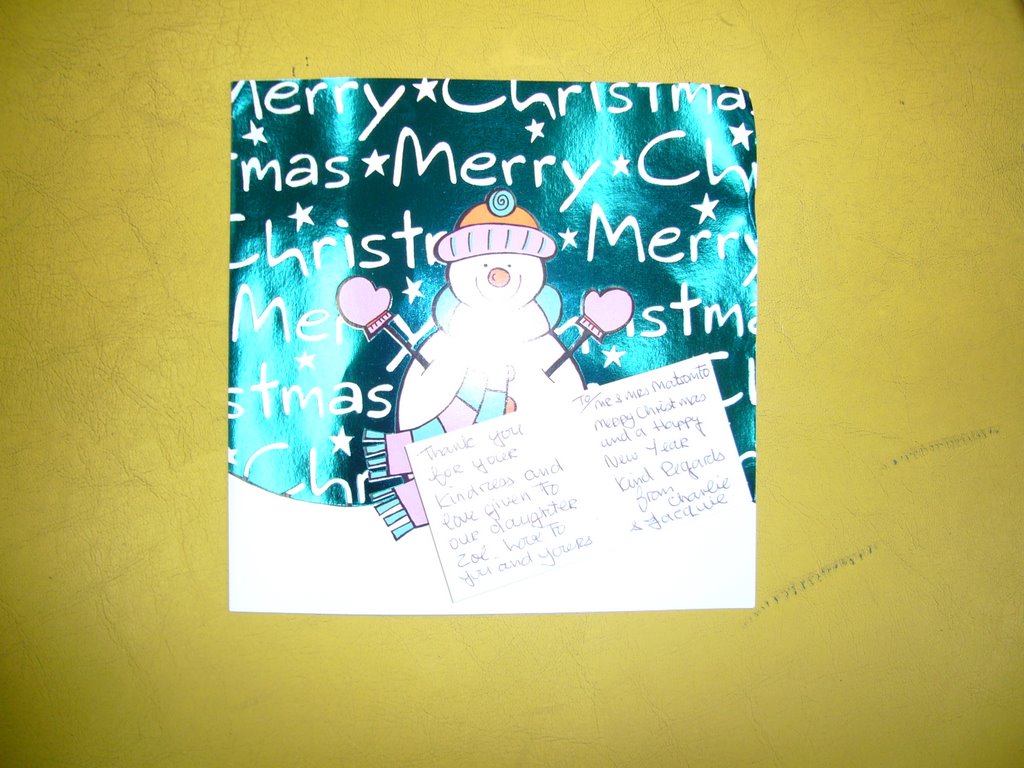 Merry ★ Christma
mas ★ Merry ★ Ch
Christ ★ Merry
Me istma
stmas Ch
Chr
Thank you
for your
kindness and
love given to
our daughter
Zoë. Love to
you and yours
To Mr & Mrs
Merry Christmas
and a Happy
New Year
Kind Regards
from Charlie
& Jacquie